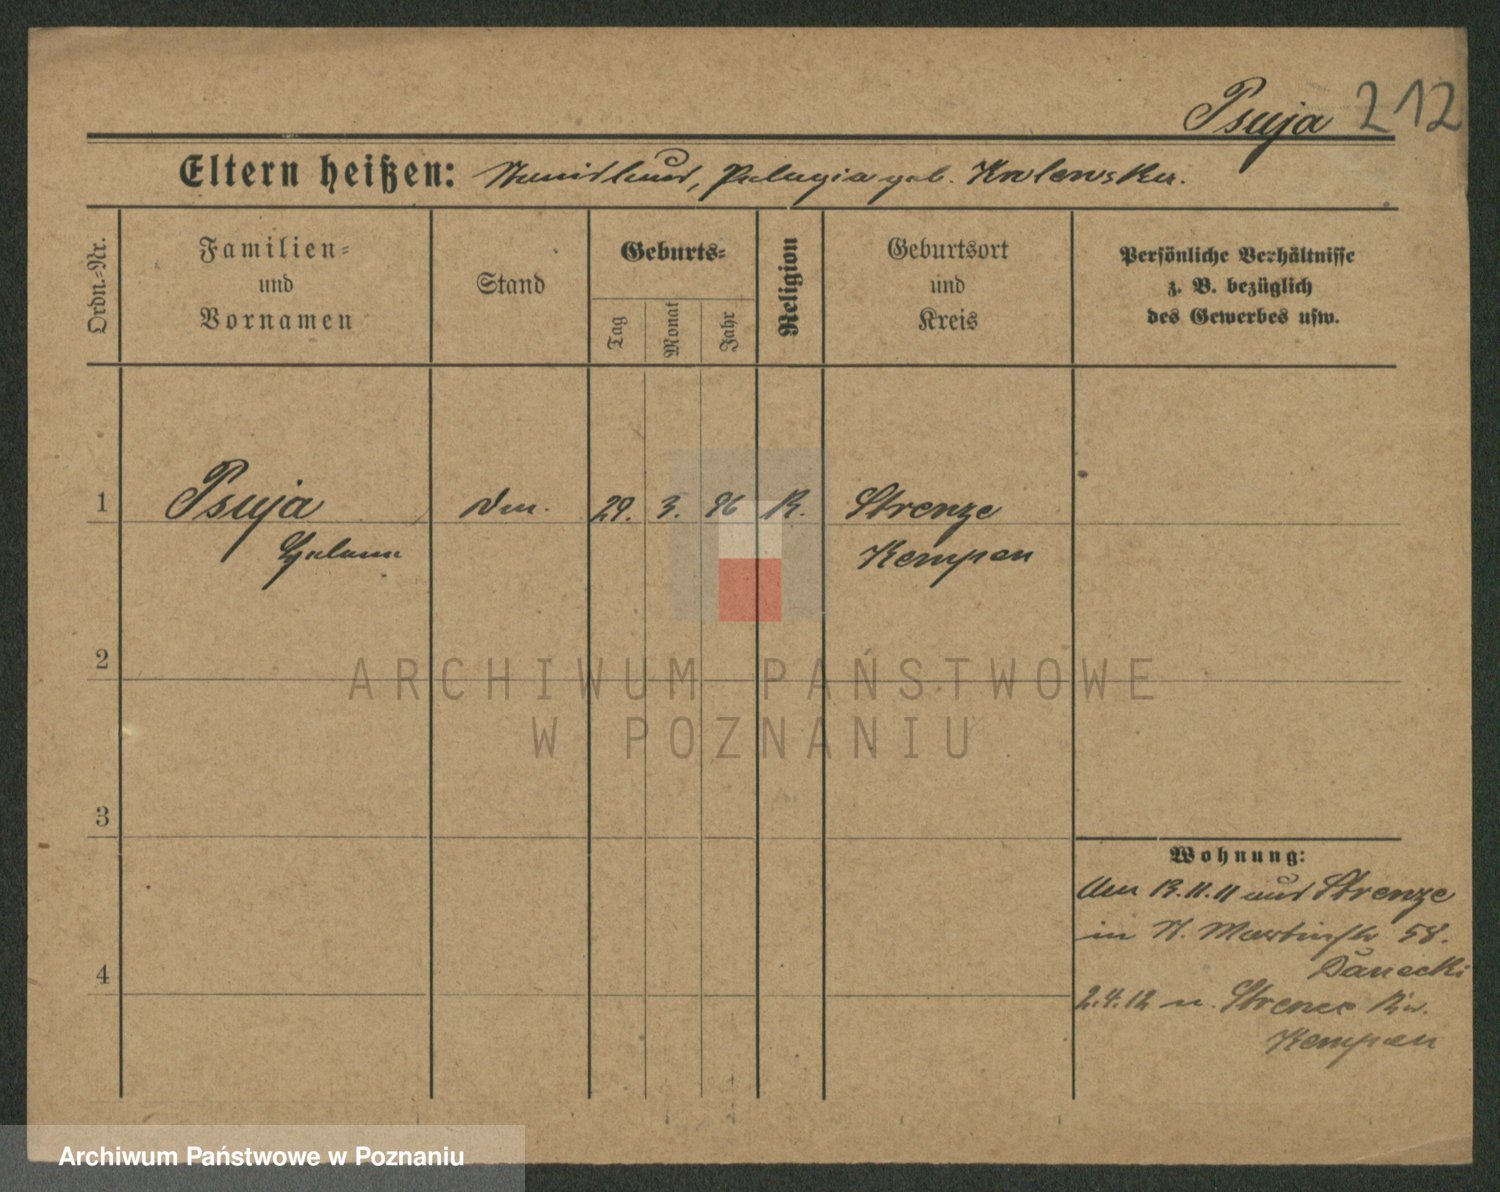 Psuja 212
Eltern heißen: Pelagia geb. Krolewska.
Ordn.-Nr.
Familien-
und
Vornamen
Stand
Geburts-
Tag
Monat
Jahr
Religion
Geburtsort
und
Kreis
Persönliche Verhältnisse
z. B. bezüglich
des Gewerbes usw.
1 Psuja 29. 3. 96 K. Strenze
Kempen
2
ARCHIWUM PAŃSTWOWE
W POZNANIU
3
Wohnung:
Am 13.11.11 aus Strenze
in St. Martinstr 58.
Danecki
4
2.4.12 n. Strenze Kr.
Kempen
Archiwum Państwowe w Poznaniu